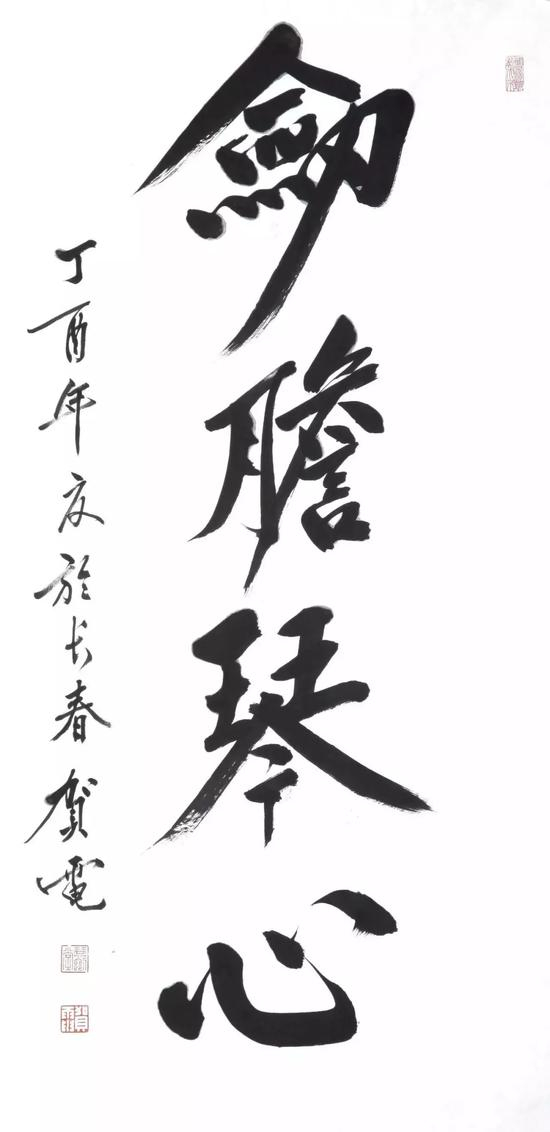 劒膽琴心
丁酉年夏於长春賀電